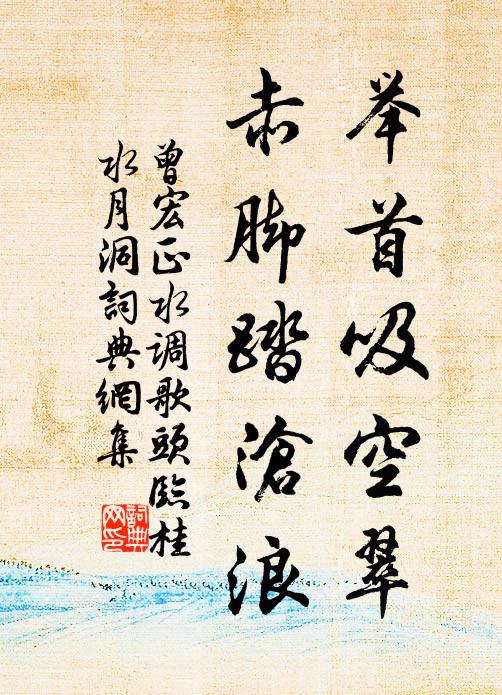 举首吸空翠
赤脚踏滄浪
曾宏正水调歌頭臨桂
水月洞詞典網集
詞典网印